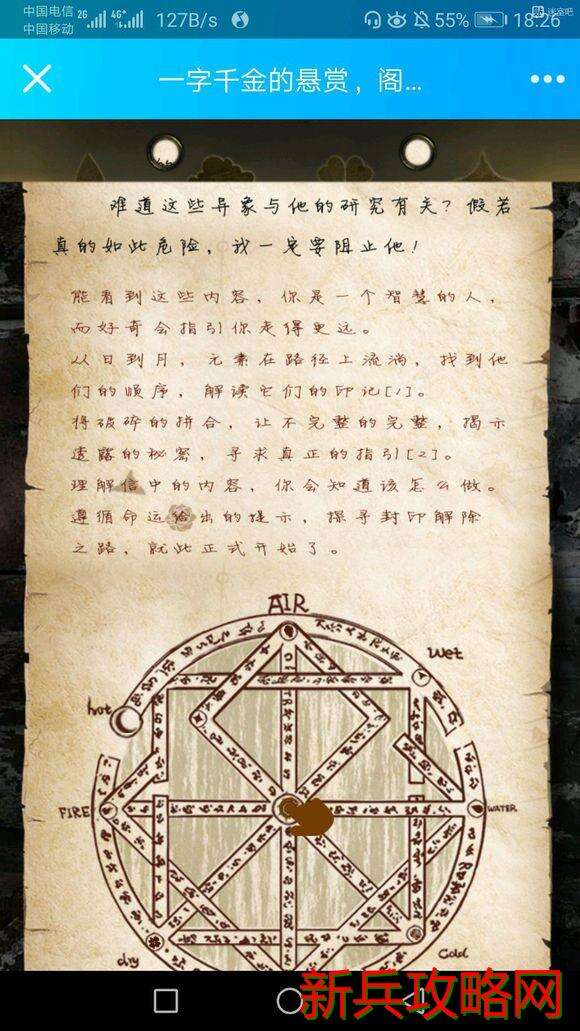 中国电信 2G 4G 127B/s 55% 18:26
中国移动
迷室吧
一字千金的悬赏，阁...
难道这些异象与他的研究有关？假若
真的如此危险，我一定要阻止他！
能看到这些内容，你是一个智慧的人，
而好奇会指引你走得更远。
从日到月，元素在路径上流淌，找到他
们的顺序，解读它们的印记[1]。
将破碎的拼合，让不完整的完整，揭示
透露的秘密，寻求真正的指引[2]。
理解信中的内容，你会知道该怎么做。
遵循命运给出的提示，探寻封印解除
之路，就此正式开始了。
AIR
wet
hot
FIRE
WATER
dry
Cold
新兵攻略网